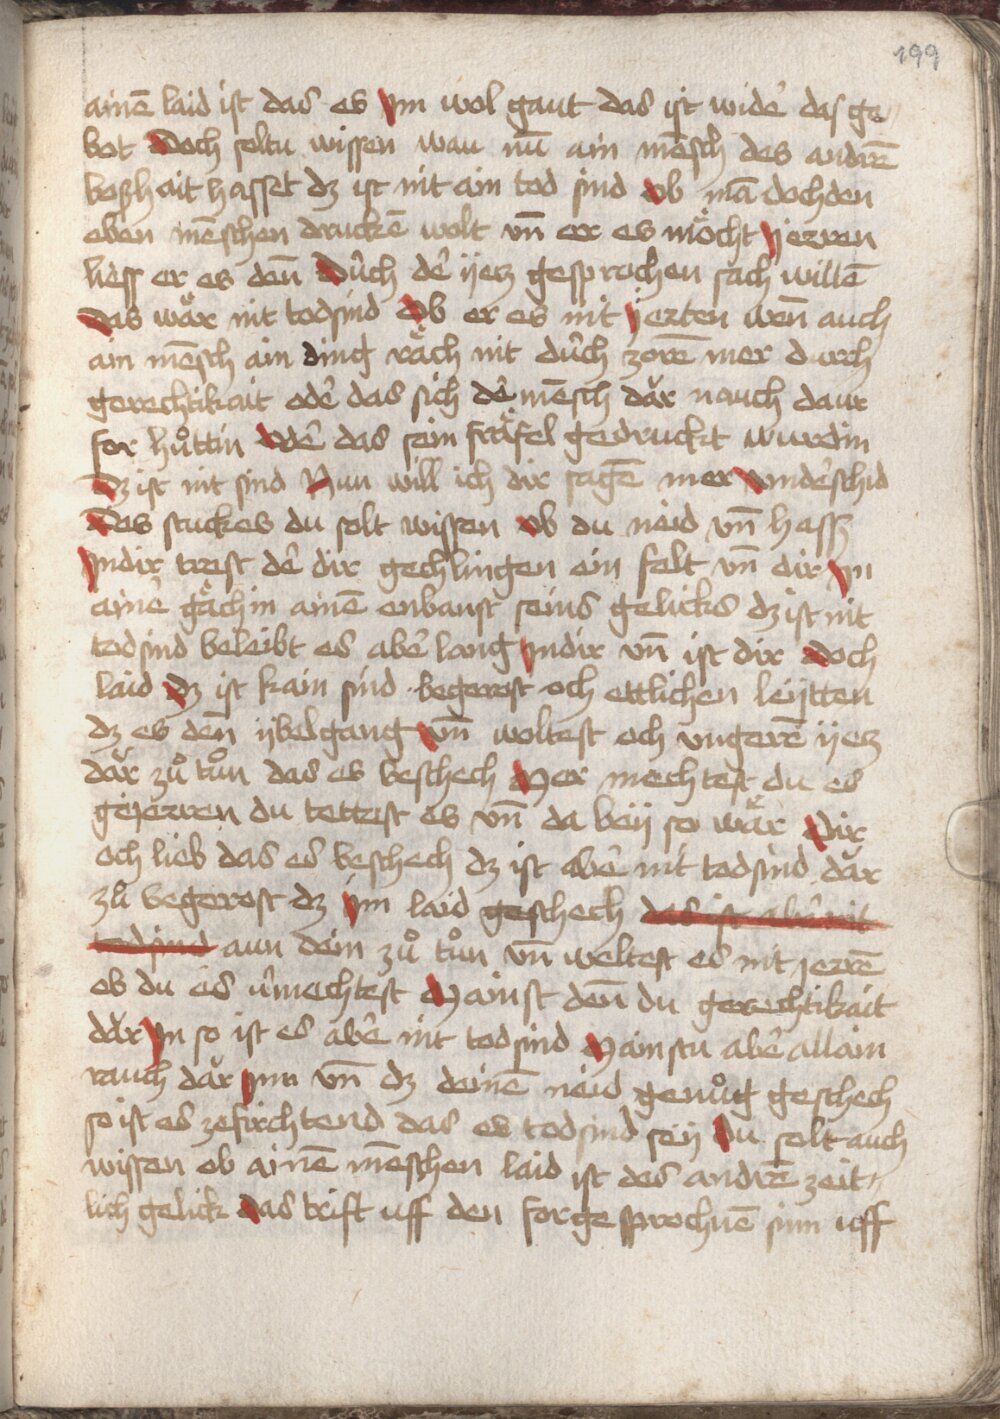 199
ainē laid ist das es Im wol gaut das ist widē das ge-
bot Doch soltu wissen wan nū ain mēsch des andrē
boshait hasset dz ist nit ain tod sind Ob mā doch den
eben mēschen druckē wolt vn̄ er es mo᷍cht ÿezren
liess er es den̄ Dūch dē ÿetz gesprochen sach willē
Das wär nit todsind Ob er es nit jezten wen̄ auch
ain mēsch ain ding räch nit dūch zorē mer durch
gerechtikait odē das sich dē mēsch dǎr nauch daur
for hu̇ttin Odē das sein fräfel gedruckt wurdin
Dz ist nit sind Nun will ich dir sagē mer vndēschid
Des stuckes du solt wissen ob du neid vn̄ hass
Indir trest dē dir gechlingen ein felt vn̄ dir In
ainē gächin ainē enbaust seins gelicks dz ist nit
todsind beleibt es abē lang Indir vn̄ ist dir Doch
laid Dz ist kain sind begerest och ettlichen leÿtten
dz es den̄ ÿbel gang Vn̄ woltest och vngerē ÿetz
där zů tůn das es beschech Mer mechtest du es
du tettest es vn̄ da beÿ so wär Dir
och lieb das es beschech dz ist abē nit todsind dǎr
zů begerest dz Im laid geschech das ist abē nit
todsind aun dein zů tůn vn̄ weltest es nit jezrē
ob du es v̄mechtest Mainst den̄ du gerechtikait
dǎr In so ist es abē nit todsind Mainstu abē allain
rauch dǎr Inn vn̄ dz deinē neid genůg geschech
so ist es zefirchtend das es todsind seÿ Du solt auch
wissen ob ainē mēschen laid ist des andrē zeit-
lich gelick Das trift uff den for gesprochnē sinn uff